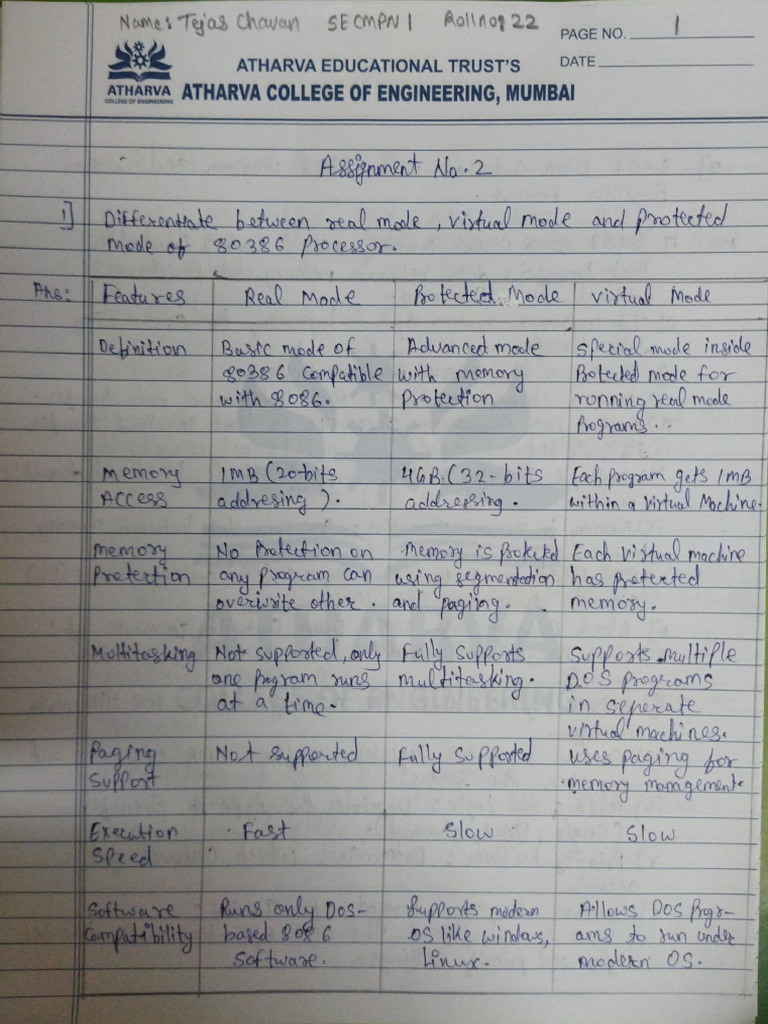 Name: Tejas Chavan SECMPN1 Rollno: 22
PAGE NO. 1
DATE
ATHARVA
COLLEGE OF ENGINEERING
ATHARVA EDUCATIONAL TRUST'S
ATHARVA COLLEGE OF ENGINEERING, MUMBAI
Assignment No. 2
1] Differentiate between real mode, virtual mode and protected
mode of 80386 Processor.
Ans: Features Real Mode Protected Mode Virtual Mode
Definition Basic mode of Advanced mode special mode inside
80386 compatible with memory Protected mode for
with 8086. Protection running real mode
Programs.
Memory 1MB (20-bits 4GB (32-bits Each program gets 1MB
ACCESS addresing). addressing. within a virtual Machine.
Memory No Protection on Memory is protected Each virtual machine
Protection any program can using segmentation has protected
overwrite other. and paging. memory.
Multitasking Not supported, only Fully supports supports multiple
one program runs multitasking. DOS programs
at a time. in seperate
virtual machines.
Paging Not supported Fully supported uses paging for
support memory management.
Execution Fast Slow Slow
speed
Software Runs only DOS- supports modern Allows DOS progr-
compatibility based 8086 OS like windows, ams to run under
software. Linux. modern OS.